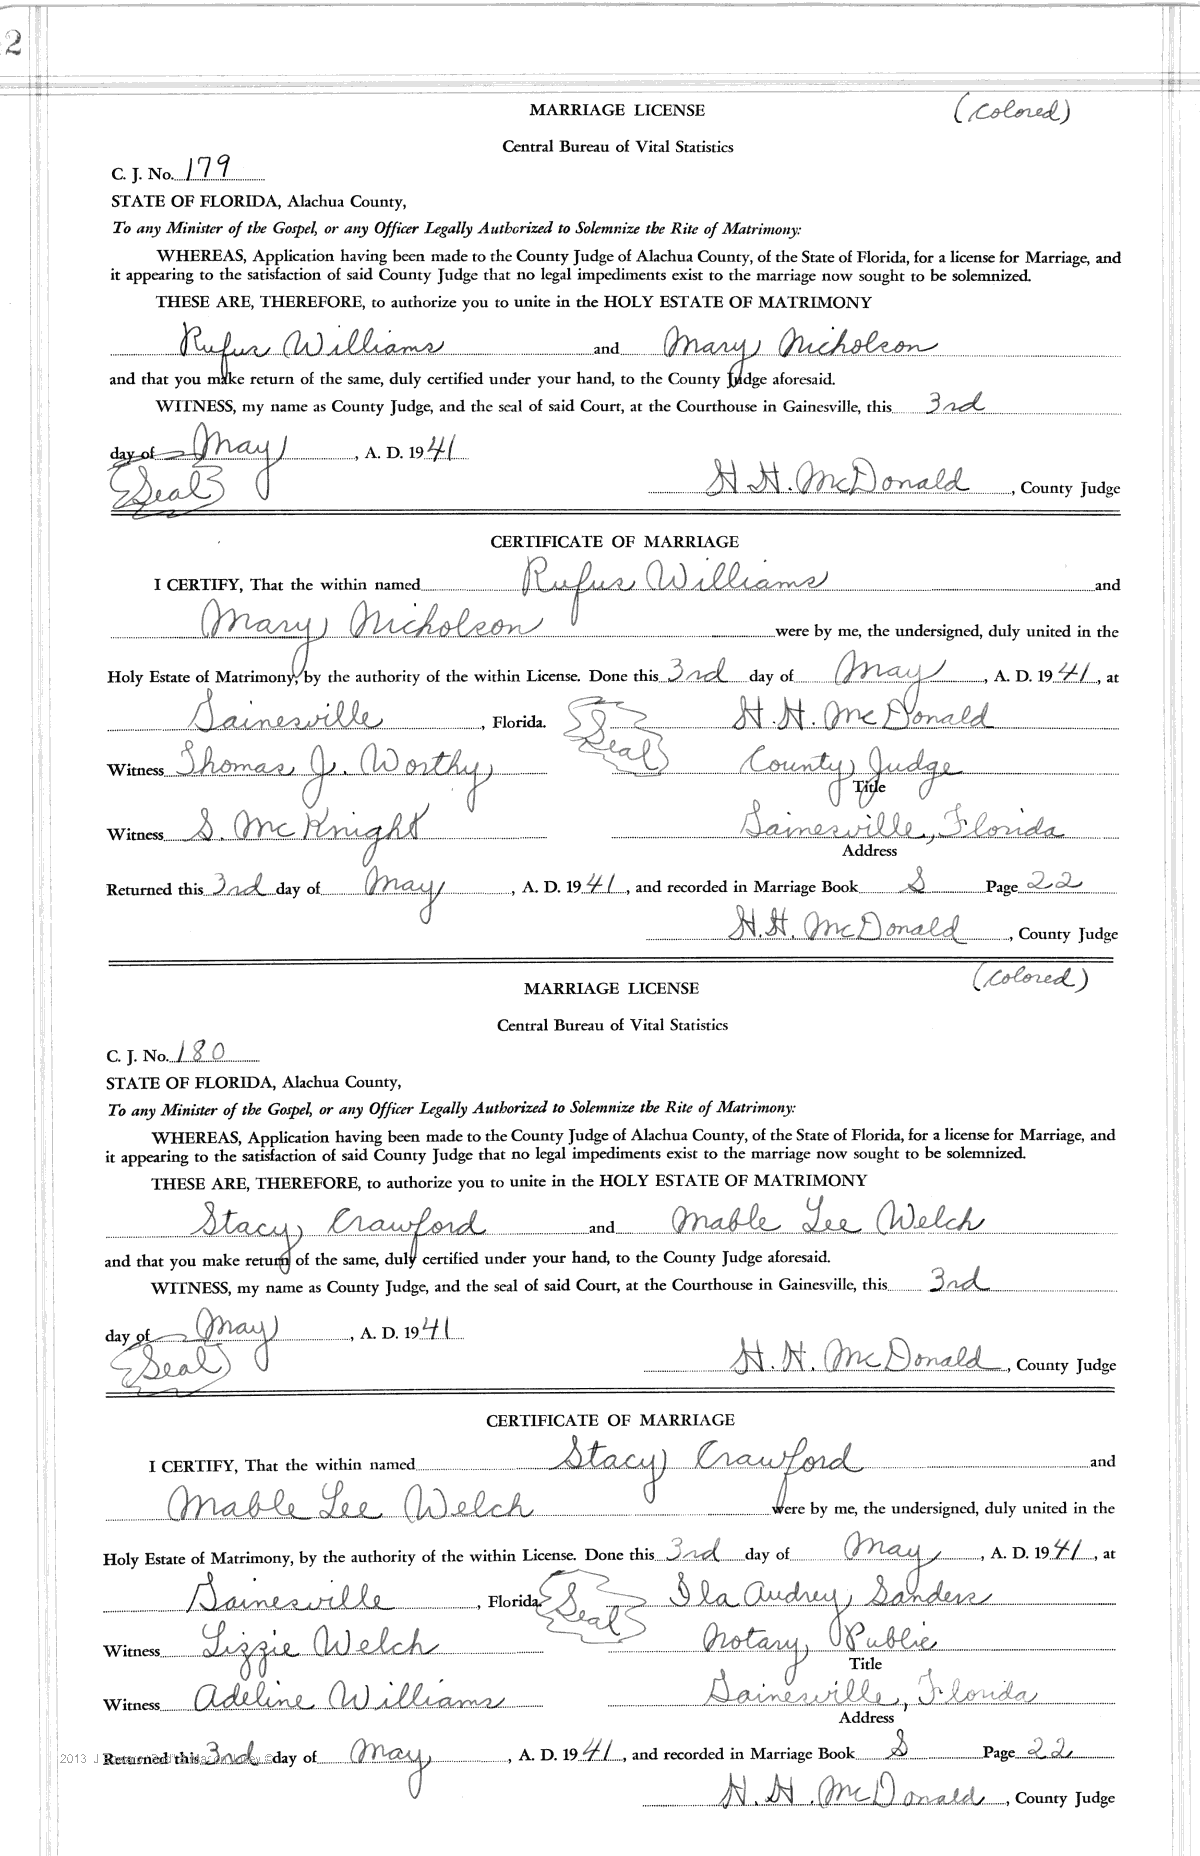 2
MARRIAGE LICENSE (Colored)
Central Bureau of Vital Statistics
C. J. No. 179
STATE OF FLORIDA, Alachua County,
To any Minister of the Gospel, or any Officer Legally Authorized to Solemnize the Rite of Matrimony:
WHEREAS, Application having been made to the County Judge of Alachua County, of the State of Florida, for a license for Marriage, and
it appearing to the satisfaction of said County Judge that no legal impediments exist to the marriage now sought to be solemnized.
THESE ARE, THEREFORE, to authorize you to unite in the HOLY ESTATE OF MATRIMONY
Rufus Williams and Mary Nicholson
and that you make return of the same, duly certified under your hand, to the County Judge aforesaid.
WITNESS, my name as County Judge, and the seal of said Court, at the Courthouse in Gainesville, this 3rd
day of May, A. D. 1941
Seal H. H. McDonald, County Judge
CERTIFICATE OF MARRIAGE
I CERTIFY, That the within named Rufus Williams and
Mary Nicholson were by me, the undersigned, duly united in the
Holy Estate of Matrimony, by the authority of the within License. Done this 3rd day of May, A. D. 1941, at
Gainesville, Florida. Seal H. H. McDonald
Witness Thomas J. Worthy County Judge
Title
Witness S. McKnight Gainesville, Florida
Address
Returned this 3rd day of May, A. D. 1941, and recorded in Marriage Book S Page 22
H. H. McDonald, County Judge
(Colored)
MARRIAGE LICENSE
Central Bureau of Vital Statistics
C. J. No. 180
STATE OF FLORIDA, Alachua County,
To any Minister of the Gospel, or any Officer Legally Authorized to Solemnize the Rite of Matrimony:
WHEREAS, Application having been made to the County Judge of Alachua County, of the State of Florida, for a license for Marriage, and
it appearing to the satisfaction of said County Judge that no legal impediments exist to the marriage now sought to be solemnized.
THESE ARE, THEREFORE, to authorize you to unite in the HOLY ESTATE OF MATRIMONY
Stacy Crawford and Mable Lee Welch
and that you make return of the same, duly certified under your hand, to the County Judge aforesaid.
WITNESS, my name as County Judge, and the seal of said Court, at the Courthouse in Gainesville, this 3rd
day of May, A. D. 1941
Seal H. H. McDonald, County Judge
CERTIFICATE OF MARRIAGE
I CERTIFY, That the within named Stacy Crawford and
Mable Lee Welch were by me, the undersigned, duly united in the
Holy Estate of Matrimony, by the authority of the within License. Done this 3rd day of May, A. D. 1941, at
Gainesville, Florida. Seal Ila Audrey Sanders
Witness Lizzie Welch Notary Public
Title
Witness Adeline Williams Gainesville, Florida
Address
2013 Returned this 3rd day of May, A. D. 1941, and recorded in Marriage Book S Page 22
H. H. McDonald, County Judge